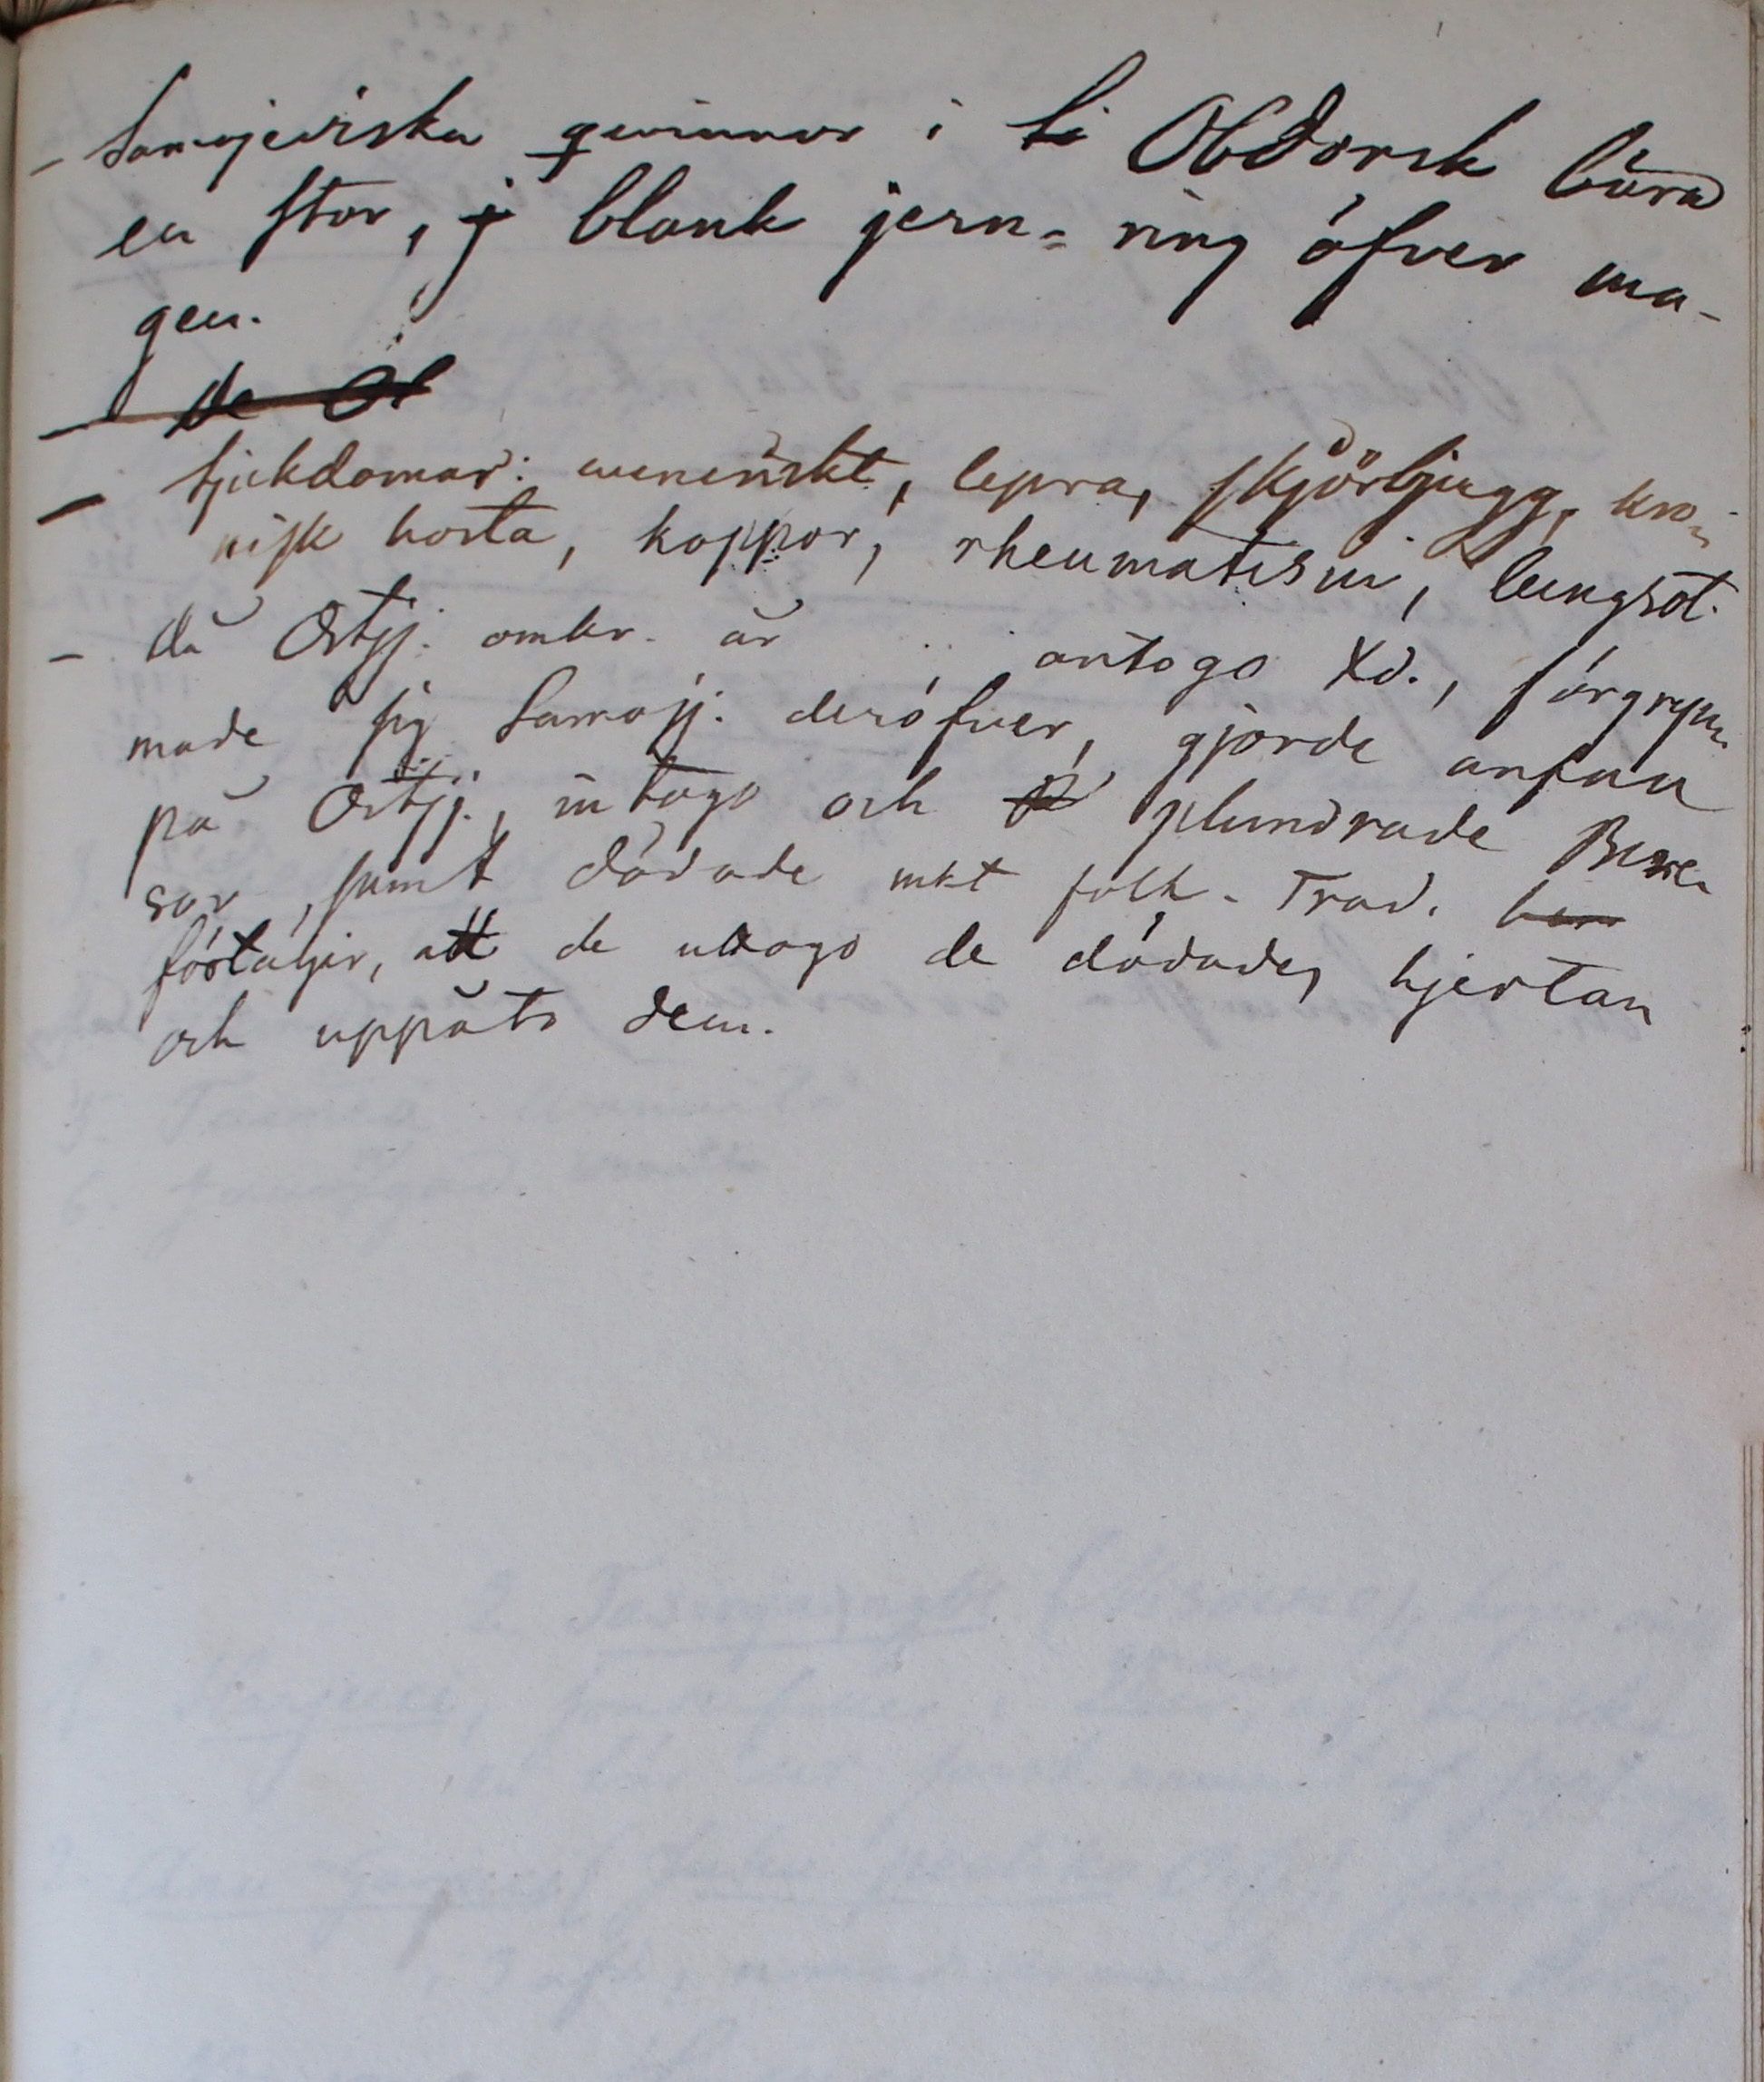 – Samojediska qvinnor i Obdorsk bära
en stor, j blank jern- ring öfver ma-
gen.
– de Ob
– Sjukdomar: veneriskt, lepra, skjörbjugg, kro-
nisk hosta, koppor, rheumatism, lungsot.
– då Ostjj. omkr. år antogo Xd., förgrym-
made sig Samojj. deröfver, gjorde anfall
på Ostjj., intogo och p plundrade Bere-
sov, samt dödade mkt folk. Trad. ber
förtäljer, att de uttogo de dödades hjertan
och uppåto dem.